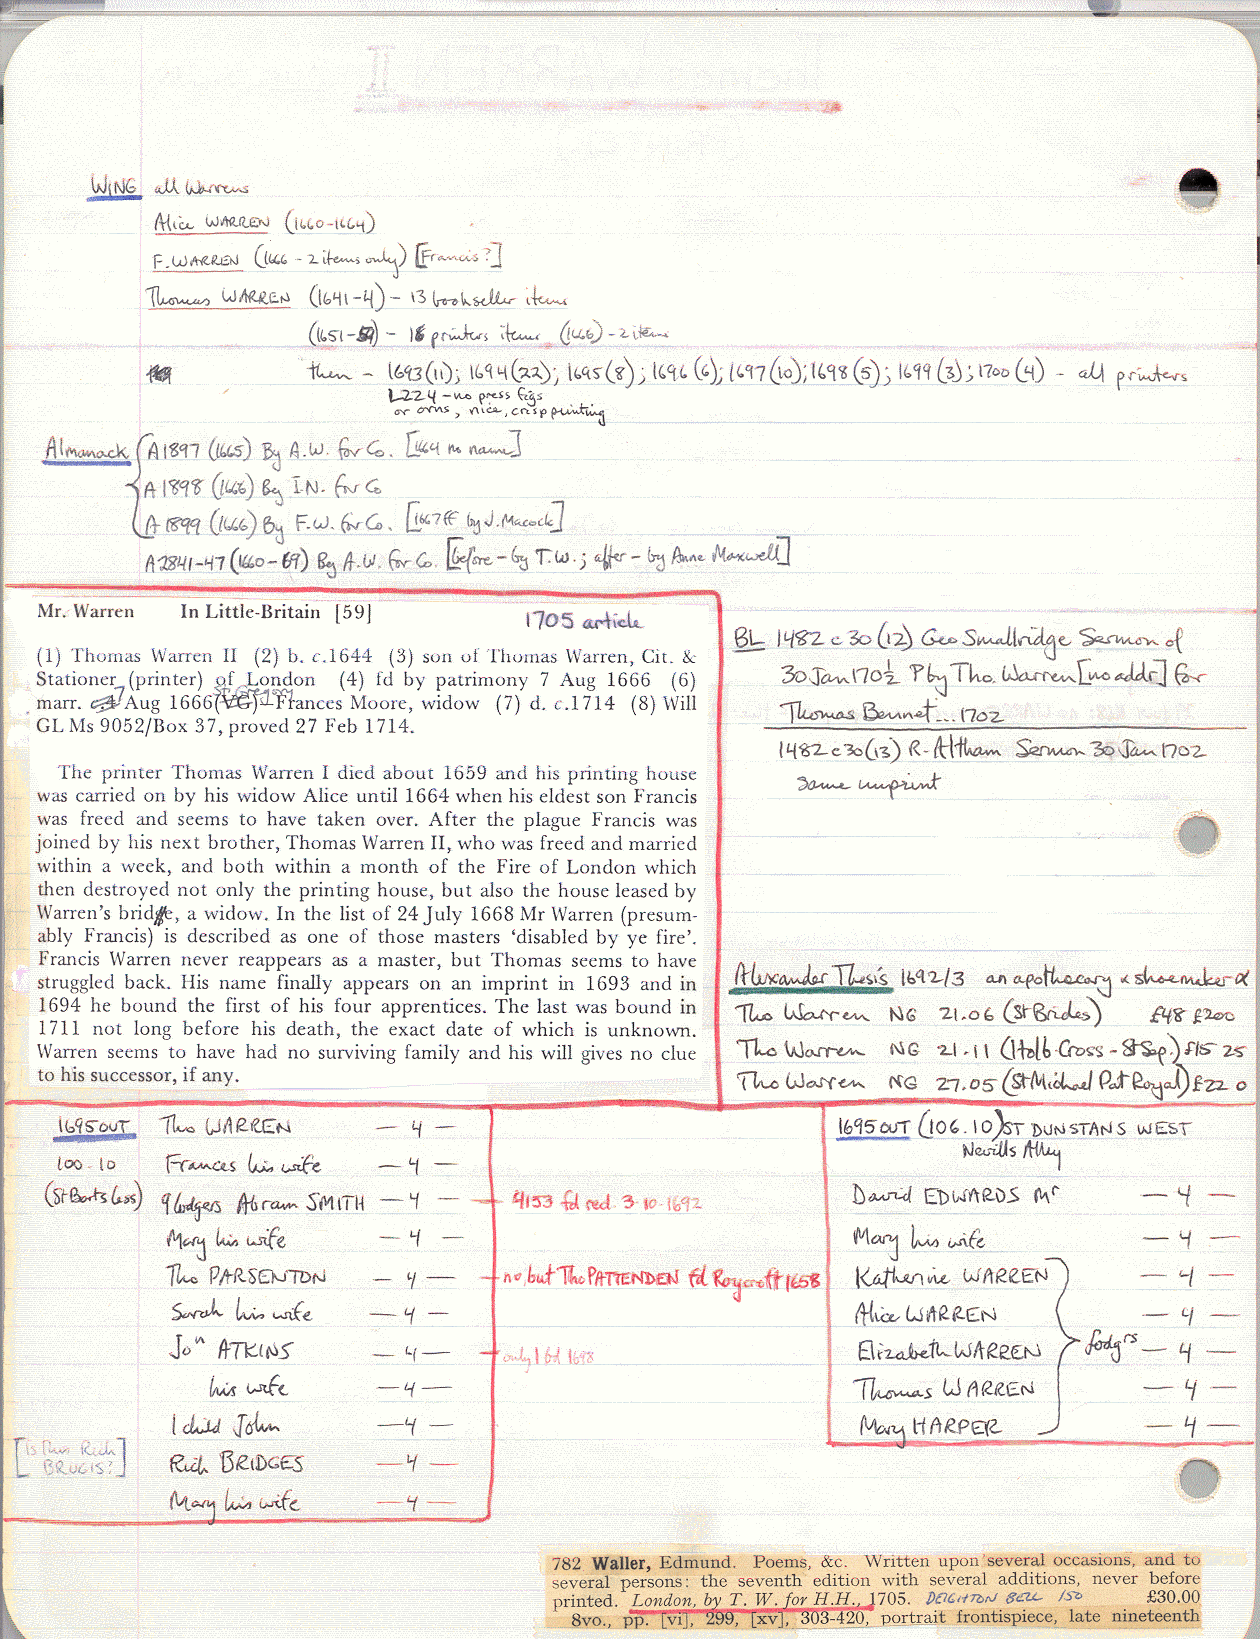 WING all Warrens
Alice WARREN (1660-1664)
F. WARREN (1666 - 2 items only) [Francis?]
Thomas WARREN (1641-4) - 13 bookseller items
(1651-59) - 18 printers items (1666) - 2 items
then - 1693(11); 1694(22); 1695(8); 1696(6); 1697(10); 1698(5); 1699(3); 1700(4) - all printers
L224 - no press figs
or orns, nice, crisp printing
Almanack A1897 (1665) By A.W. for Co. [1664 no name]
A1898 (1666) By I.N. for Co
A1899 (1666) By F.W. for Co. [1667ff by J. Macock]
A2841-47 (1660-69) By A.W. for Co. [before - by T.W.; after - by Anne Maxwell]
Mr. Warren In Little-Britain [59] 1705 article
(1) Thomas Warren II (2) b. c.1644 (3) son of Thomas Warren, Cit. &
Stationer (printer) of London (4) fd by patrimony 7 Aug 1666 (6)
St Gregory
marr. 7 Aug 1666 (VG) Frances Moore, widow (7) d. c.1714 (8) Will
GL Ms 9052/Box 37, proved 27 Feb 1714.
The printer Thomas Warren I died about 1659 and his printing house
was carried on by his widow Alice until 1664 when his eldest son Francis
was freed and seems to have taken over. After the plague Francis was
joined by his next brother, Thomas Warren II, who was freed and married
within a week, and both within a month of the Fire of London which
then destroyed not only the printing house, but also the house leased by
Warren's bride, a widow. In the list of 24 July 1668 Mr Warren (presum-
ably Francis) is described as one of those masters 'disabled by ye fire'.
Francis Warren never reappears as a master, but Thomas seems to have
struggled back. His name finally appears on an imprint in 1693 and in
1694 he bound the first of his four apprentices. The last was bound in
1711 not long before his death, the exact date of which is unknown.
Warren seems to have had no surviving family and his will gives no clue
to his successor, if any.
BL 1482 c 30 (12) Geo Smallridge Sermon of
30 Jan 170½ P by Tho. Warren [no addr] for
Thomas Bennet... 1702
1482 c 30 (13) R. Altham Sermon 30 Jan 1702
same imprint
Alexander Thesis 1692/3 an apothecary & shoemaker &
Tho Warren NG 21.06 (St Brides) £48 £200
Tho Warren NG 21.11 (Holb Cross - St Sep.) £15 25
Tho Warren NG 27.05 (St Michael Pat Royal) £22 0
1695 OUT Tho WARREN - 4 -
100-10 Frances his wife - 4 -
(St Barts Less) 9 lodgers Abram SMITH - 4 - 4153 fd red. 3-10-1692
Mary his wife - 4 -
Tho PARSENTON - 4 - no, but Tho PATTENDEN fd Roycroft 1658
Sarah his wife - 4 -
Jon ATKINS - 4 - only 1 bd 1698
his wife - 4 -
1 child John - 4 -
[is this Rich BRUGIS?] Rich BRIDGES - 4 -
Mary his wife - 4 -
1695 OUT (106.10) ST DUNSTANS WEST
Nevills Alley
David EDWARDS Mr - 4 -
Mary his wife - 4 -
Katherine WARREN - 4 -
Alice WARREN - 4 -
Elizabeth WARREN lodgrs - 4 -
Thomas WARREN - 4 -
Mary HARPER - 4 -
782 Waller, Edmund. Poems, &c. Written upon several occasions, and to
several persons: the seventh edition with several additions, never before
printed. London, by T. W. for H.H., 1705. DEIGHTON BELL 150 £30.00
8vo., pp. [vi], 299, [xv], 303-420, portrait frontispiece, late nineteenth